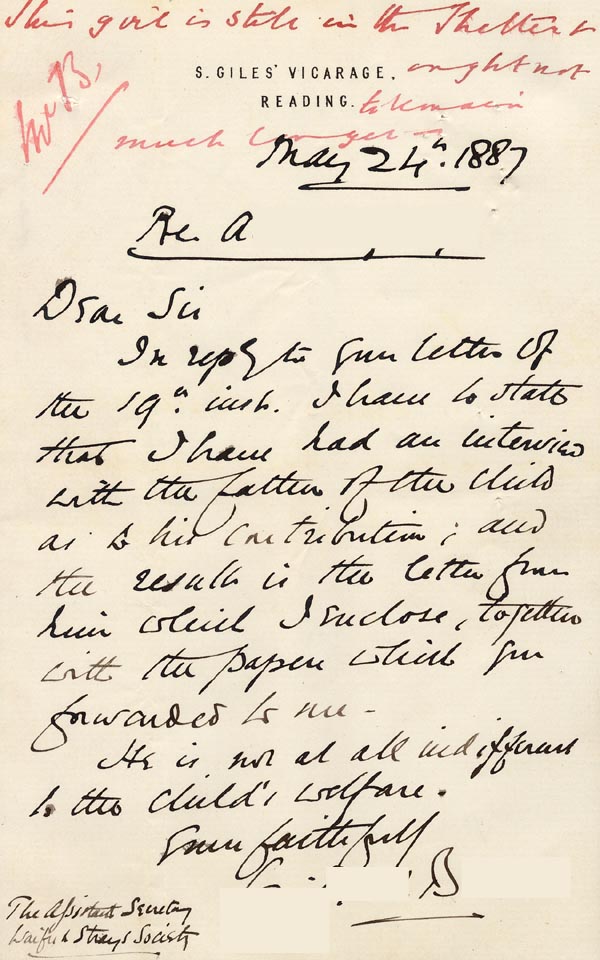 This girl is still in the Shelter &
S. GILES' VICARAGE, ought not
READING. to remain
much longer
May 24th. 1887
Re. A
Dear Sir
In reply to your letter of
the 19th. inst. I have to state
that I have had an interview
with the father of the child
as to his contribution; and
the result is the letter from
him which I enclose, together
with the papers which you
forwarded to me -
He is not at all indifferent
to the child's welfare.
Your faithfull
B
The Assistant Secretary
Waifs & Strays Society